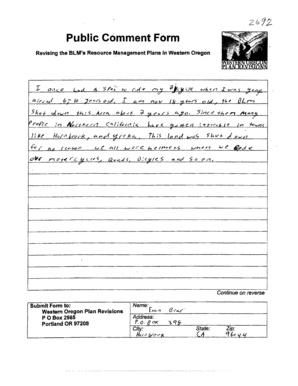 2692
Public Comment Form
Revising the BLM's Resource Management Plans in Western Oregon
WESTERN OREGON
PLAN REVISIONS
I once had a spot to ride my when I was year
old. I am now 18 years old, the Blm
Shut down this Area about 7 years ago. Since then Many
People in Northern California have gotten in towns
like Hornbrook, and yreka. This land was shut down
for no reason we all wore helmets when we Rode
our motorcycles, Quads, Bicycles and so on.
Continue on reverse
Submit Form to:
Western Oregon Plan Revisions
P O Box 2965
Portland OR 97208
Name:
Address:
P.O. Box 395
City: State: Zip:
Hornbrook CA 96044